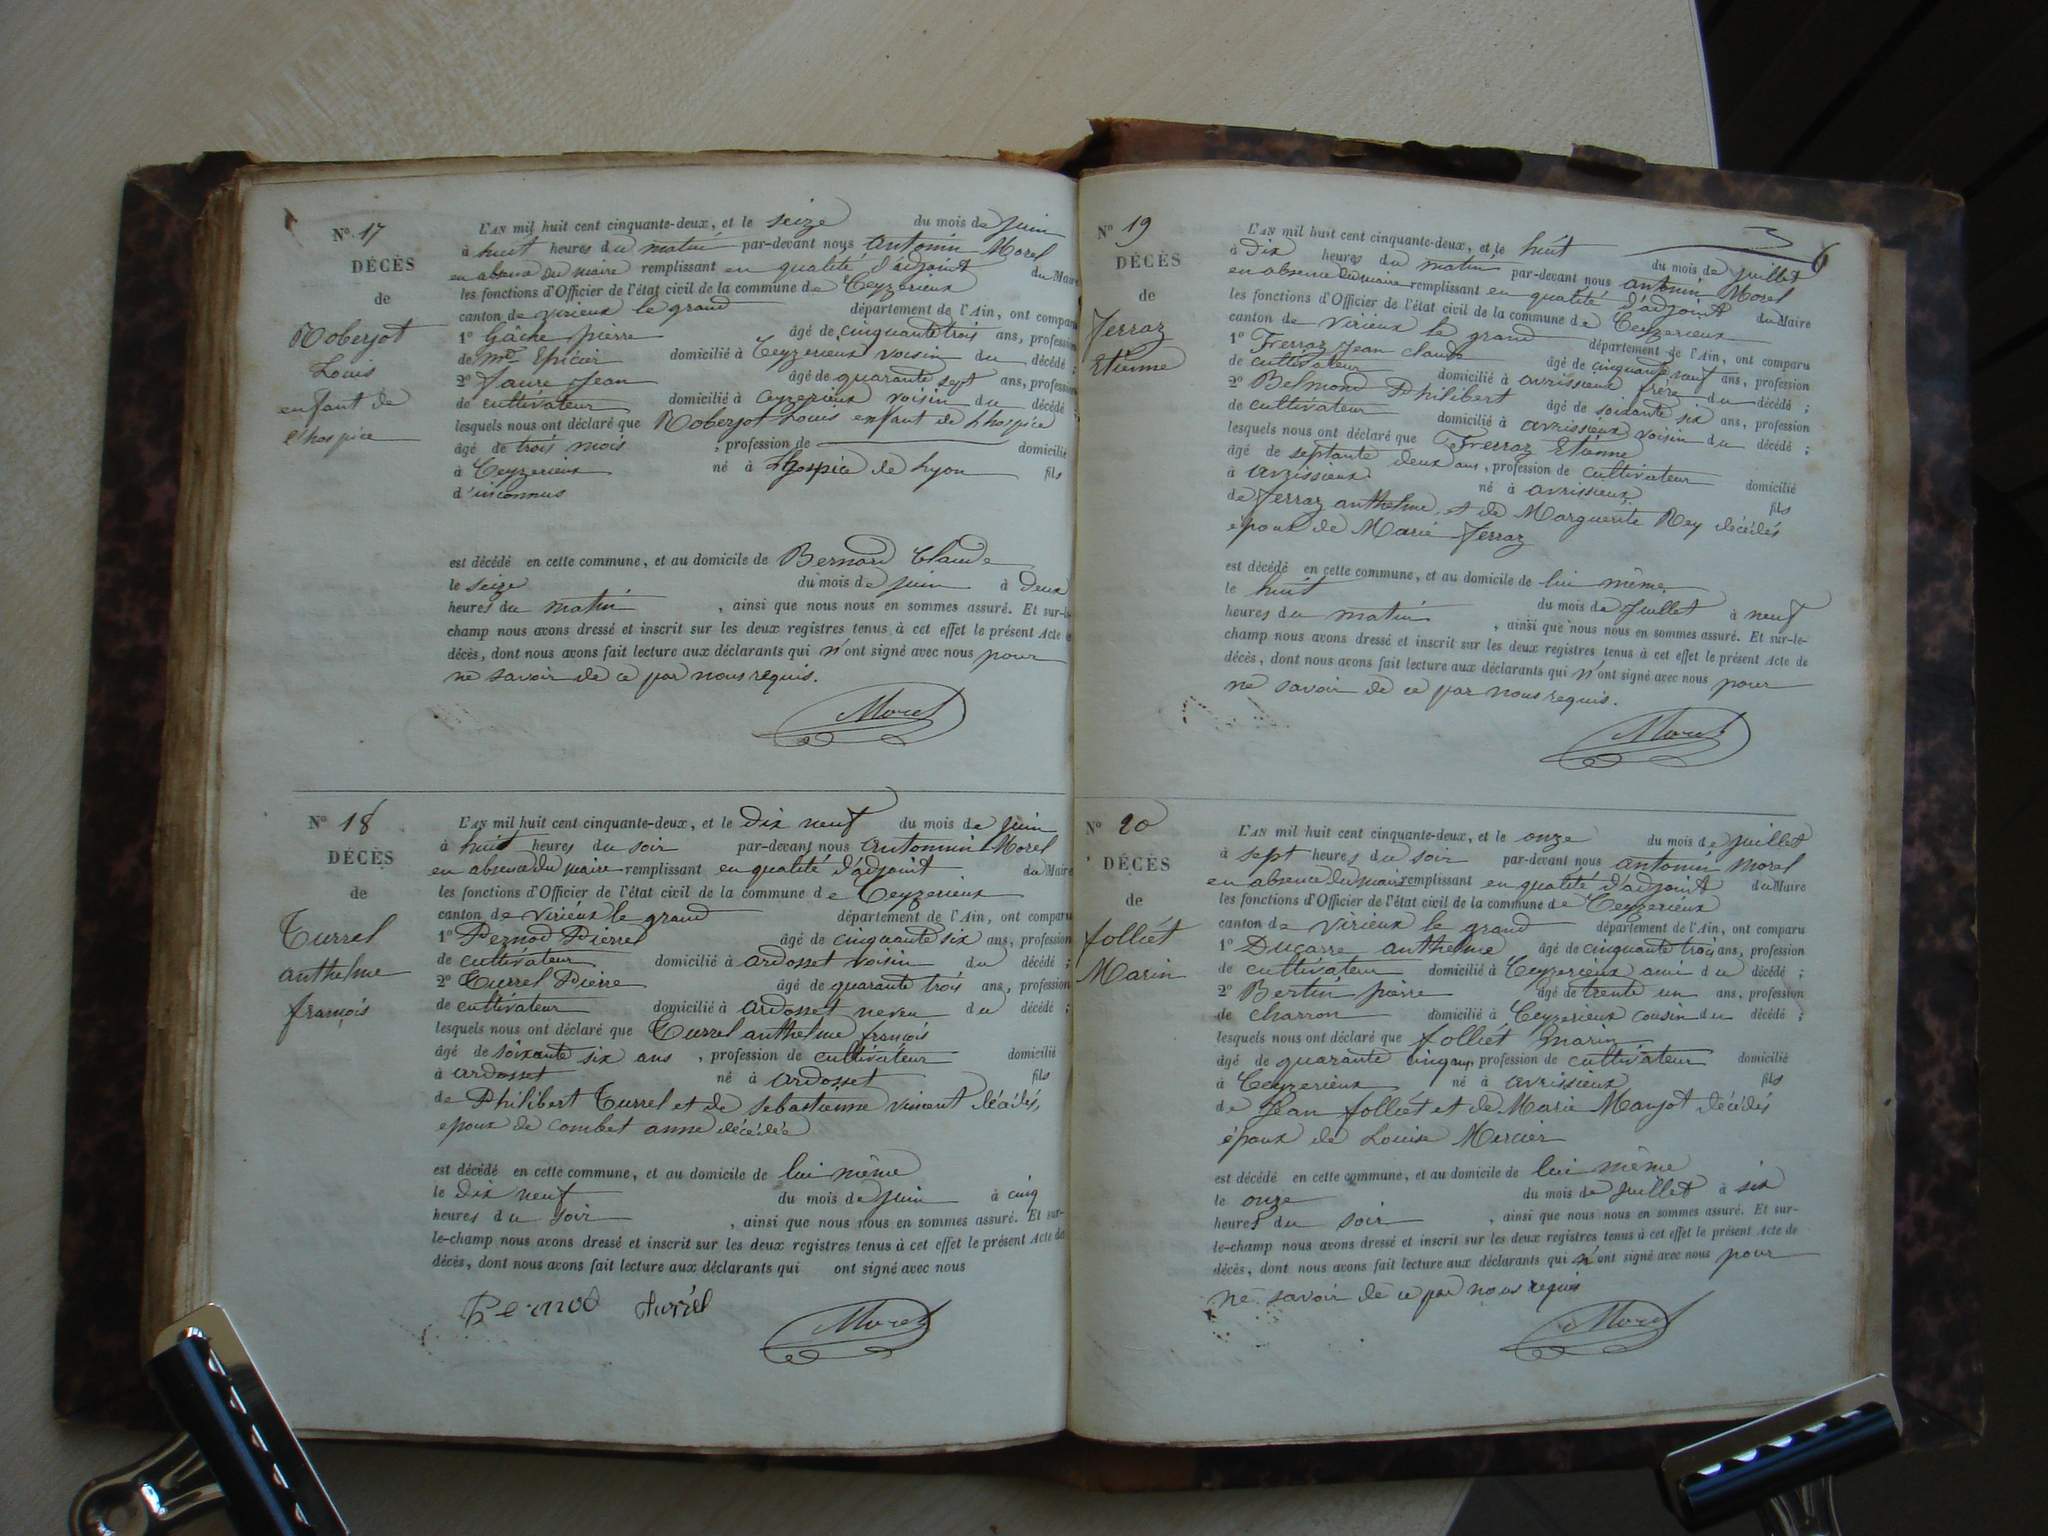 N° 17
DÉCÈS
de
Roberjot
Louis
enfant de
l'hospice
L'AN mil huit cent cinquante-deux, et le seize du mois de juin
à huit heures du matin par-devant nous antonin Morel
en absence du maire remplissant en qualité d'adjoint du Maire
les fonctions d'Officier de l'état civil de la commune de Ceyzerieux
canton de virieux le grand département de l'Ain, ont comparu
1° Gâche pierre âgé de cinquante trois ans, profession
de md Epicier domicilié à Ceyzerieux voisin du décédé ;
2° faure Jean âgé de quarante sept ans, profession
de cultivateur domicilié à Ceyzerieux voisin du décédé ;
lesquels nous ont déclaré que Roberjot Louis enfant de l'hospice
âgé de trois mois , profession de domicilié
à Ceyzerieux né à L'hospice de Lyon fils
d'inconnus
est décédé en cette commune, et au domicile de Bernard Claude
le seize du mois de juin à deux
heures du matin , ainsi que nous nous en sommes assuré. Et sur-le-
champ nous avons dressé et inscrit sur les deux registres tenus à cet effet le présent Acte de
décès, dont nous avons fait lecture aux déclarants qui n'ont signé avec nous pour
ne savoir de ce par nous requis.
Morel
N° 18
DÉCÈS
de
Turrel
anthelme
françois
L'AN mil huit cent cinquante-deux, et le dix neuf du mois de juin
à huit heures du soir par-devant nous antonnin Morel
en absence du maire remplissant en qualité d'adjoint du Maire
les fonctions d'Officier de l'état civil de la commune de Ceyzerieux
canton de virieux le grand département de l'Ain, ont comparu
1° Pernod Pierre âgé de cinquante six ans, profession
de cultivateur domicilié à ardosset voisin du décédé ;
2° Turrel Pierre âgé de quarante trois ans, profession
de cultivateur domicilié à ardosset neveu du décédé ;
lesquels nous ont déclaré que Turrel anthelme françois
âgé de soixante six ans , profession de cultivateur domicilié
à ardosset né à ardosset fils
de Philibert Turrel et de sebastienne vincent décédés,
epoux de combet anne décédée
est décédé en cette commune, et au domicile de lui même
le dix neuf du mois de juin à cinq
heures du soir , ainsi que nous nous en sommes assuré. Et sur-
le-champ nous avons dressé et inscrit sur les deux registres tenus à cet effet le présent Acte de
décès, dont nous avons fait lecture aux déclarants qui ont signé avec nous
Pernod turrel Morel
6
N° 19
DÉCÈS
de
Ferraz
Etienne
L'AN mil huit cent cinquante-deux, et le huit du mois de juillet
à dix heures du matin par-devant nous antonin Morel
en absence du maire remplissant en qualité d'adjoint du Maire
les fonctions d'Officier de l'état civil de la commune de Ceyzerieux
canton de virieux le grand département de l'Ain, ont comparu
1° Ferraz Jean claude âgé de cinquante neuf ans, profession
de cultivateur domicilié à avrissieux frère du décédé ;
2° Belmond Philibert âgé de soixante six ans, profession
de cultivateur domicilié à avrissieux voisin du décédé ;
lesquels nous ont déclaré que Ferraz Etienne
âgé de septante deux ans, profession de cultivateur domicilié
à avrissieux né à avrissieux fils
de Ferraz anthelme et de Marguerite Rey décédés
époux de Marie Ferraz
est décédé en cette commune, et au domicile de lui même
le huit du mois de juillet à neuf
heures du matin , ainsi que nous nous en sommes assuré. Et sur-le-
champ nous avons dressé et inscrit sur les deux registres tenus à cet effet le présent Acte de
décès, dont nous avons fait lecture aux déclarants qui n'ont signé avec nous pour
ne savoir de ce par nous requis.
Morel
N° 20
DÉCÈS
de
folliét
Marin
L'AN mil huit cent cinquante-deux, et le onze du mois de juillet
à sept heures du soir par-devant nous antonin Morel
en absence du maire remplissant en qualité d'adjoint du Maire
les fonctions d'Officier de l'état civil de la commune de Ceyzerieux
canton de virieux le grand département de l'Ain, ont comparu
1° Ducarre anthelme âgé de cinquante trois ans, profession
de cultivateur domicilié à Ceyzerieux ami du décédé ;
2° Bertin pierre âgé de trente un ans, profession
de charron domicilié à Ceyzerieux cousin du décédé ;
lesquels nous ont déclaré que folliét Marin
âgé de quarante cinq ans, profession de cultivateur domicilié
à Ceyzerieux né à avrissieux fils
de Jean folliét et de Marie Marjot décédés
époux de Louise Mercier
est décédé en cette commune, et au domicile de lui même
le onze du mois de juillet à six
heures du soir , ainsi que nous nous en sommes assuré. Et sur-
le-champ nous avons dressé et inscrit sur les deux registres tenus à cet effet le présent Acte de
décès, dont nous avons fait lecture aux déclarants qui n'ont signé avec nous pour
ne savoir de ce par nous requis
Morel